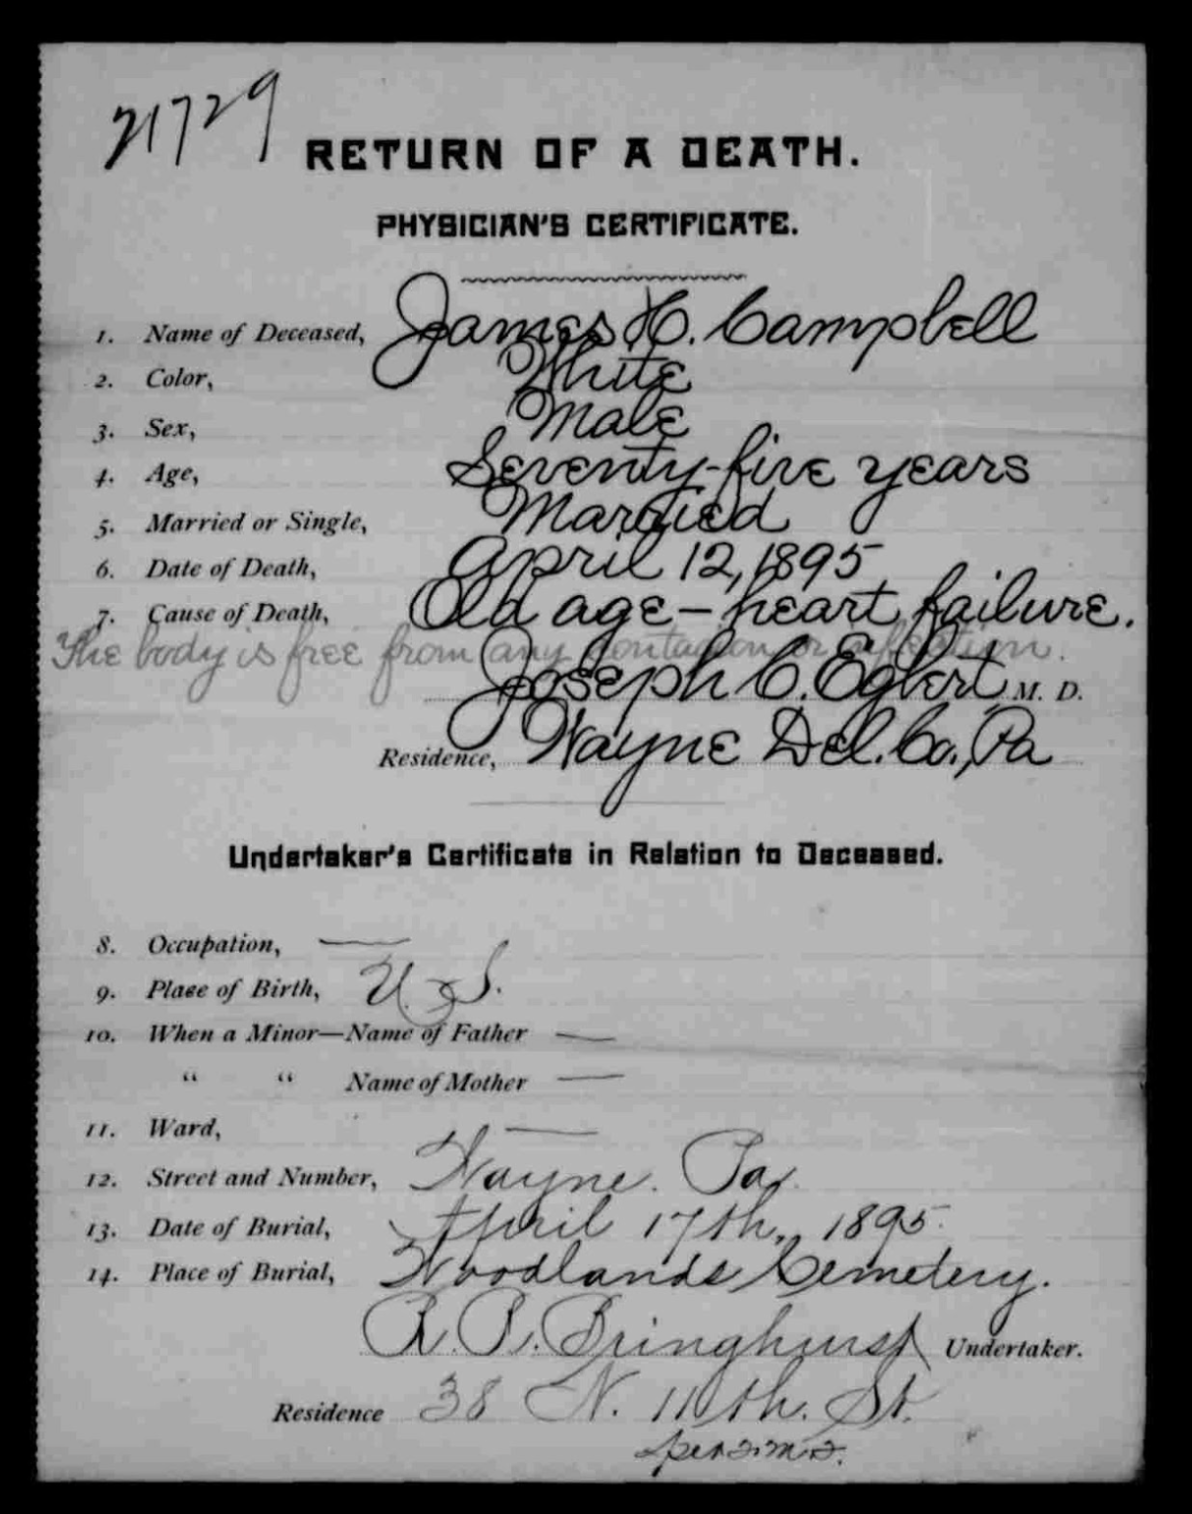 21729
RETURN OF A DEATH.
PHYSICIAN'S CERTIFICATE.
1. Name of Deceased, James H. Campbell
2. Color, White
3. Sex, Male
4. Age, Seventy-five years
5. Married or Single, Married
6. Date of Death, April 12, 1895
7. Cause of Death, Old age - heart failure.
The body is free from any contagion or infection.
Joseph C. Egbert M. D.
Residence, Wayne Del. Co., Pa
Undertaker's Certificate in Relation to Deceased.
8. Occupation, —
9. Place of Birth, U. S.
10. When a Minor—Name of Father —
" " Name of Mother —
11. Ward, —
12. Street and Number, Wayne. Pa.
13. Date of Burial, April 17th., 1895.
14. Place of Burial, Woodlands Cemetery.
R. R. Bringhurst Undertaker.
Residence 38 N. 11th. St.
per